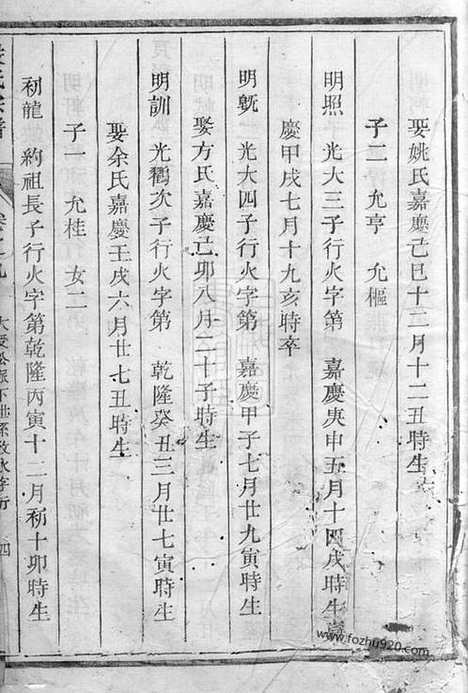 娶姚氏嘉慶己巳十二月十二丑時生
子二 允亨 允樞
明照 光大三子行火字第 嘉慶庚申五月十四戌時生嘉
慶甲戌七月十九亥時卒
明 光大四子行火字第 嘉慶甲子七月廿九寅時生
娶方氏嘉慶己卯八月二十子時生
明訓 光鸛次子行火字第 乾隆癸丑三月廿七寅時生
娶余氏嘉慶壬戌六月廿七丑時生
子一 允桂 女二
初龍 約祖長子行火字第乾隆丙寅十二月初十卯時生
氏宗譜 卷之九 四
www.fozhu920.com